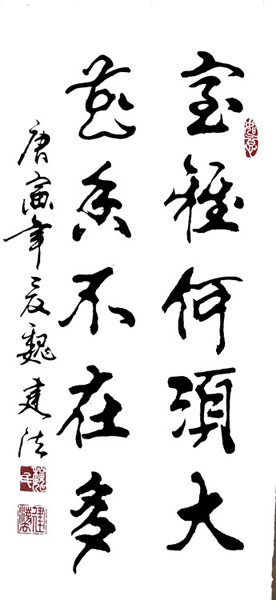 室雅何須大
花香不在多
庚寅年夏魏建法